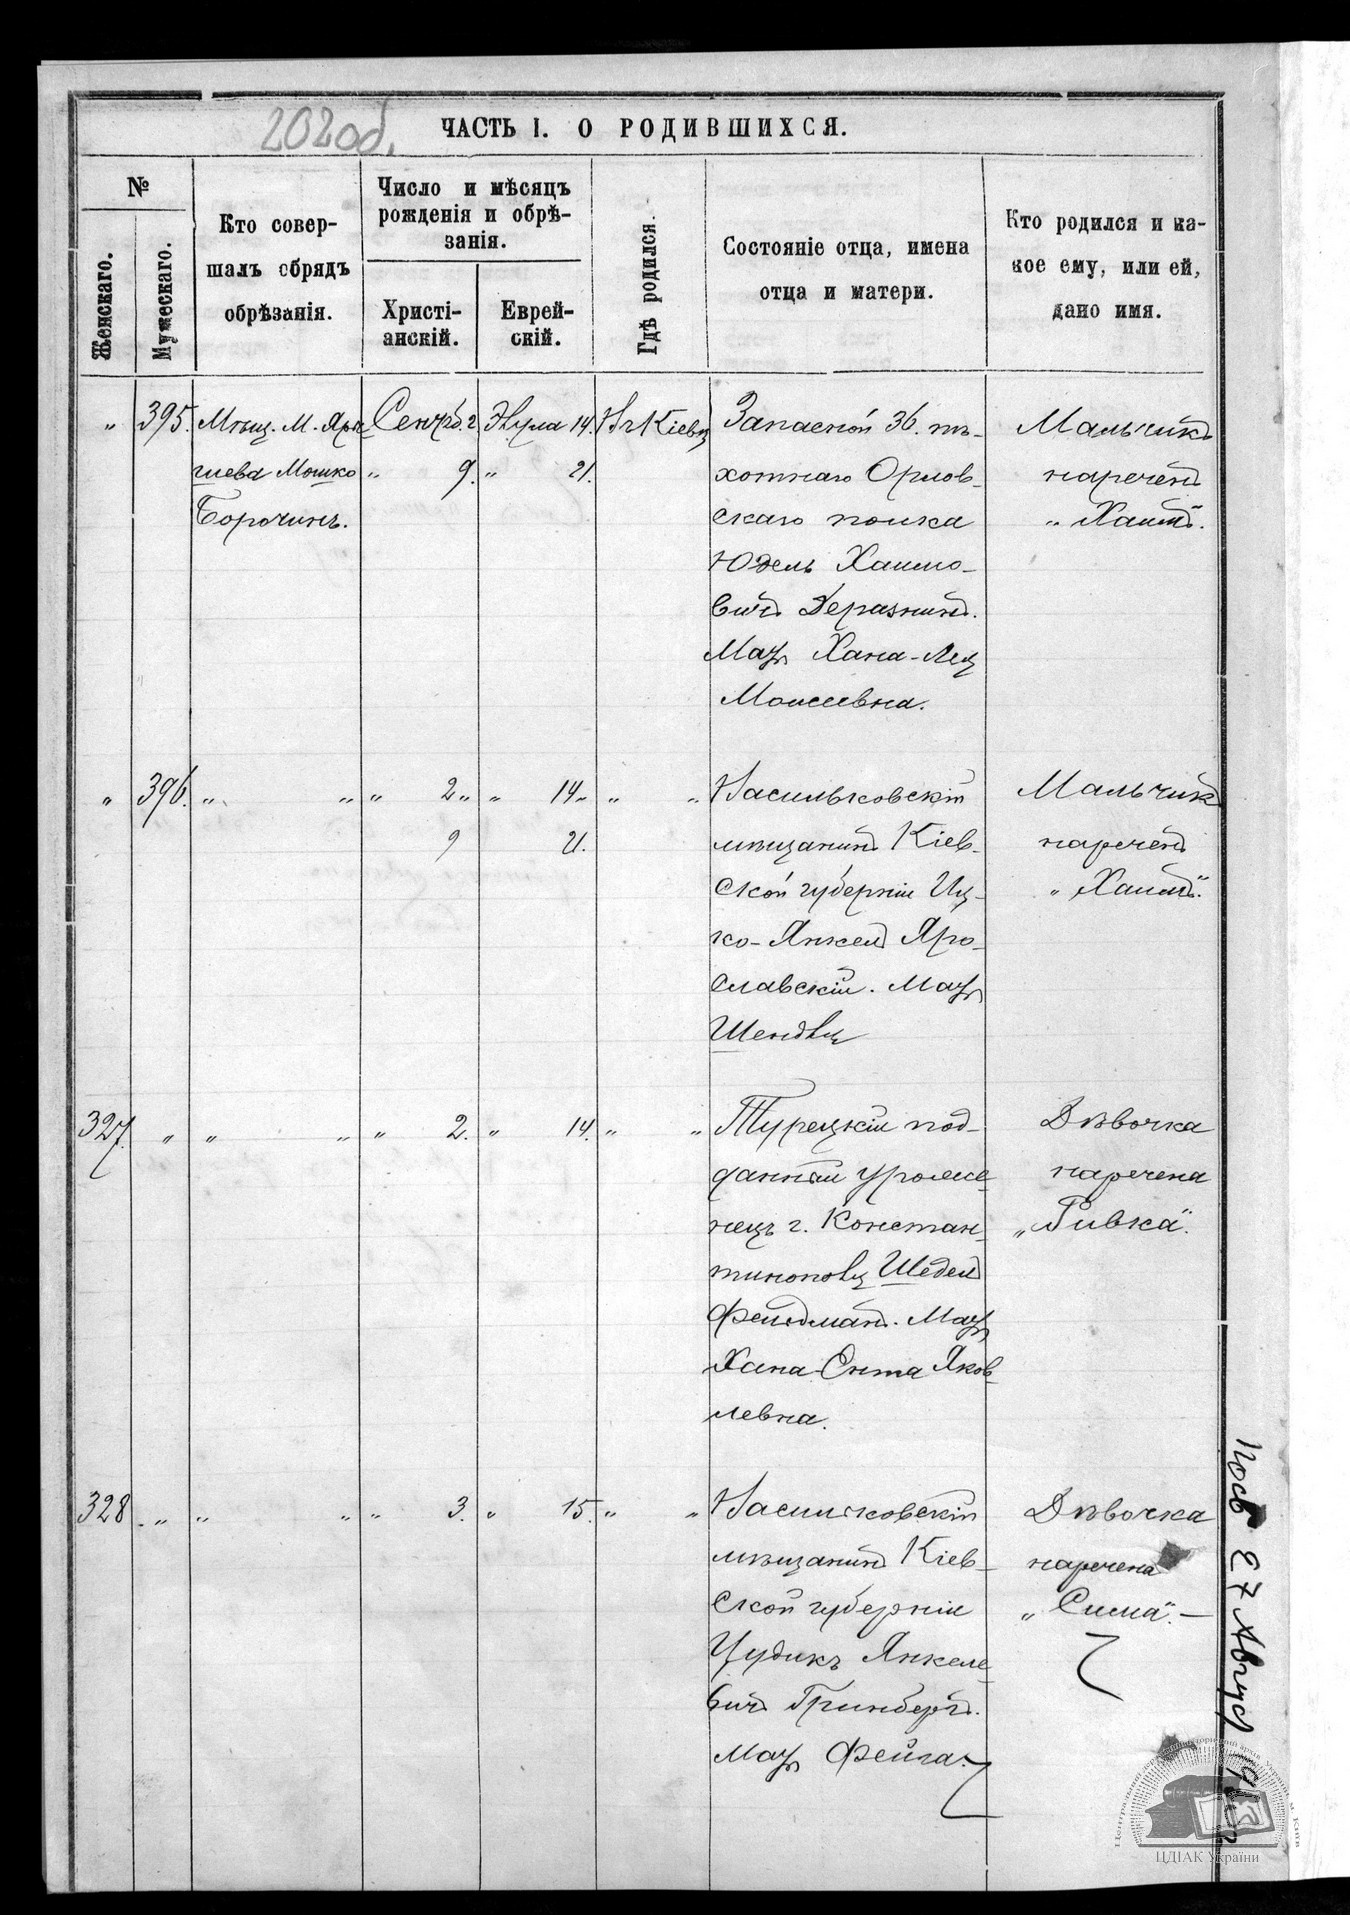 202об.
ЧАСТЬ I. О РОДИВШИХСЯ.
№
Женскаго.
Мужескаго.
Кто совер-
шалъ обрядъ
обрѣзанія.
Число и мѣсяцъ
рожденія и обрѣ-
занія.
Христі-
анскій.
Еврей-
скій.
Гдѣ родился.
Состояніе отца, имена
отца и матери.
Кто родился и ка-
кое ему, или ей,
дано имя.
„ 395. Мѣщ. М.
Мошко
Сентяб. 2. Элула 14. Въ Кіевѣ
„ 9. „ 21.
Запасной 36. пѣ-
хотнаго Орлов-
скаго полка
Юдель Хаимо-
вичъ Деражнинъ.
Мать Хана-Лея
Моисеевна.
Мальчикъ
нареченъ
„Хаимъ".
„ 396. „ „ „ 2 „ „ 14. „ „
9 21.
Васильковскій
мѣщанинъ Кіев-
ской губерніи Иц-
ко-Янкель Яро-
славскій. Мать
Шендля
Мальчикъ
нареченъ
„Хаимъ".
327. „ „ „ „ 2. „ 14. „ „
Турецкій под-
данный уроже-
нецъ г. Констан-
тинополя
Фельдманъ. Мать
Хана-Ента Яков-
левна.
Дѣвочка
наречена
„Ривка".
328. „ „ „ „ 3. „ 15. „ „
Васильковскій
мѣщанинъ Кіев-
ской губерніи
Цудикъ Янкеле-
вичъ Гринбергъ.
Мать Фейга.
Дѣвочка
наречена
„Сима". —
ЦДІАК України